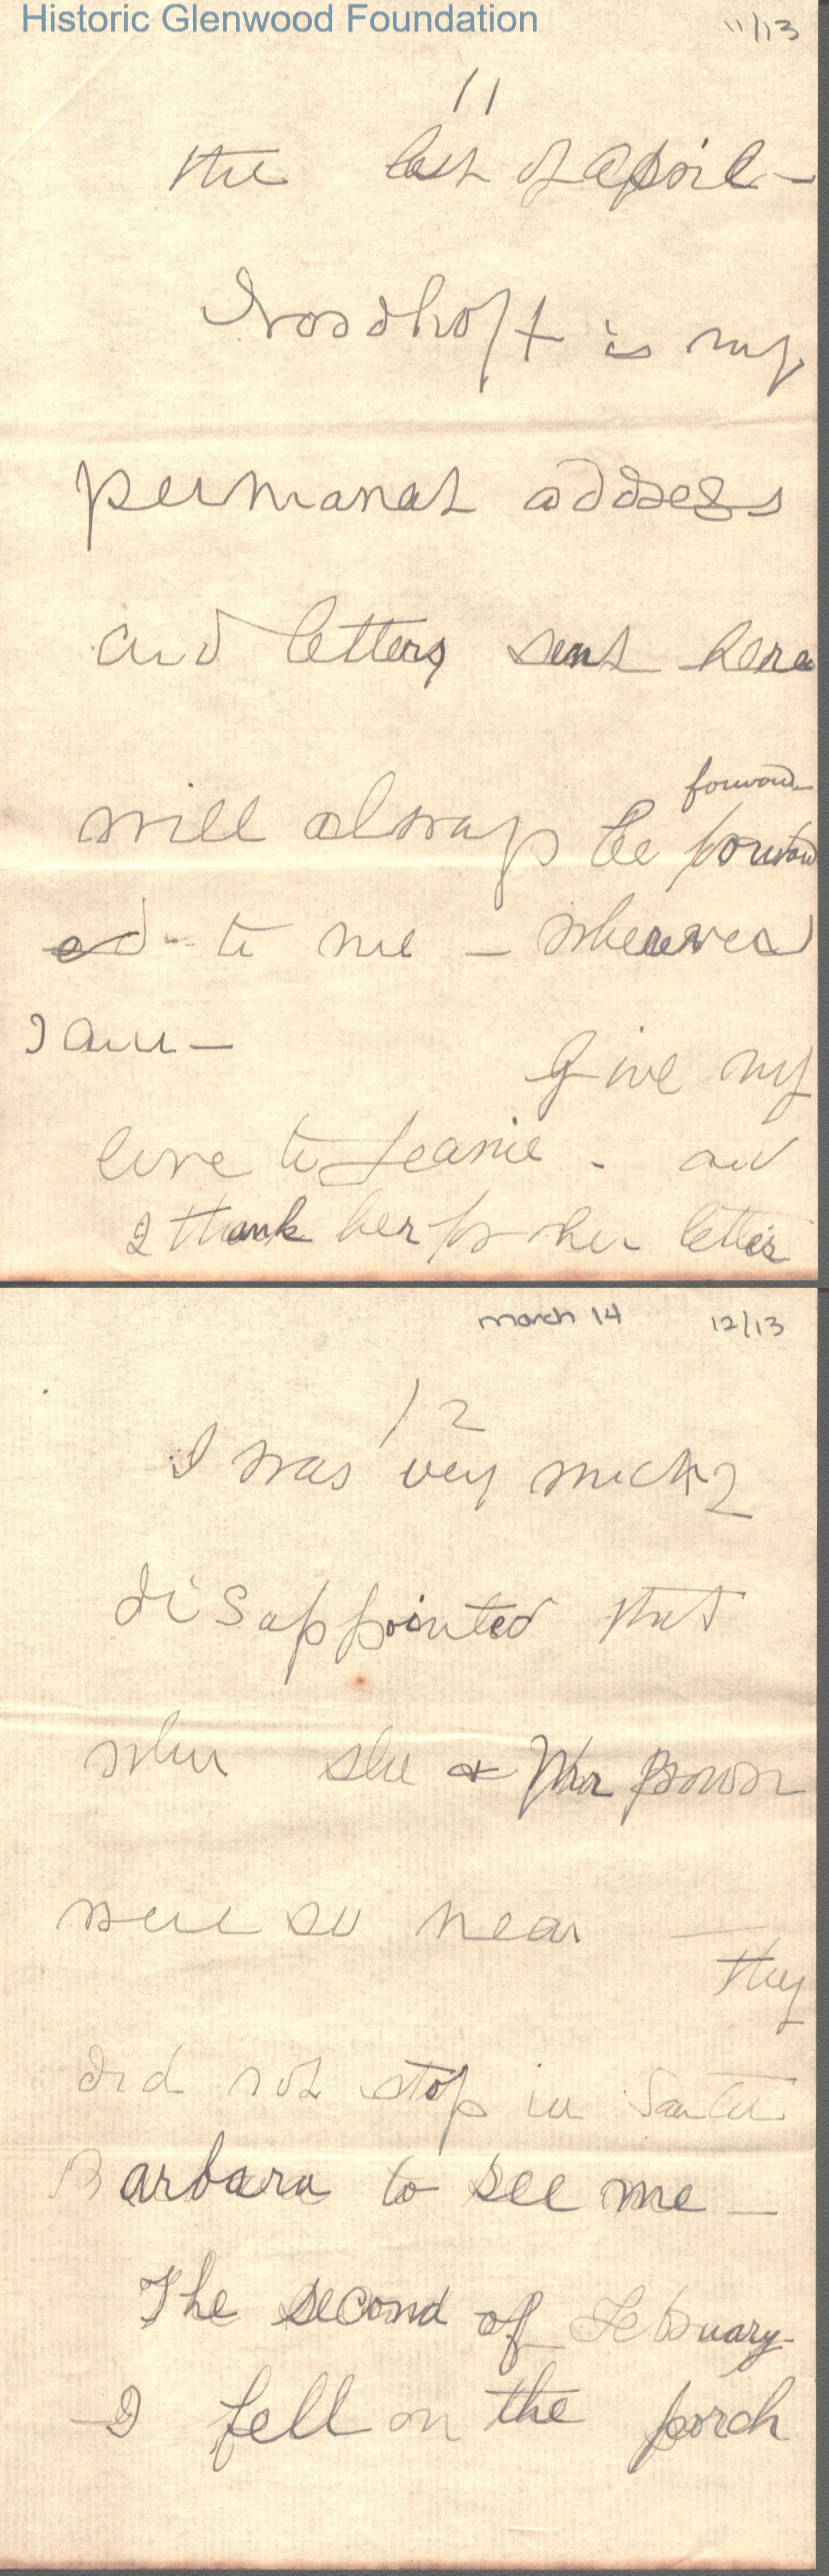 Historic Glenwood Foundation
11/13
11
the last of April -
Nordhoff is my
permanat address
and letters sent here
will always be forward
forward
ed -- to me - wherever
I am -
Give my
love to Jeanie - and
I thank her for her letter
march 14 12/13
12
I was very much
disappointed that
when she & Mr Brown
were so near -
they
did not stop in Santa
Barbara to see me -
The second of February
- I fell on the porch